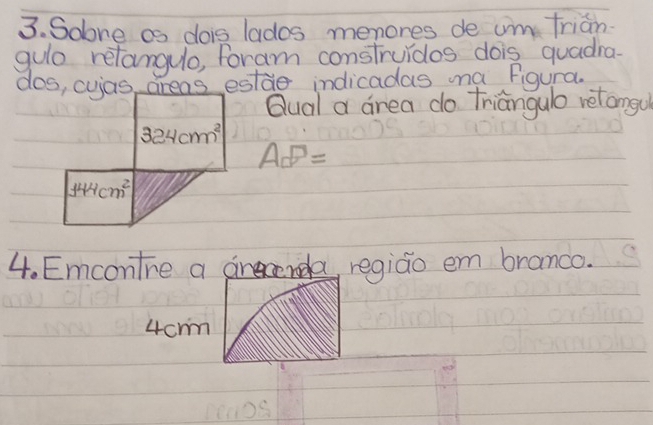 3. Sobre os dois lados menores de um triân-
gulo retangulo, foram construídos dois quadra-
dos, cujas areas estão indicadas na figura.
Qual a área do triângulo retangul
324cm²
A =
144cm²
4. Encontre a área da região em branco.
4cm